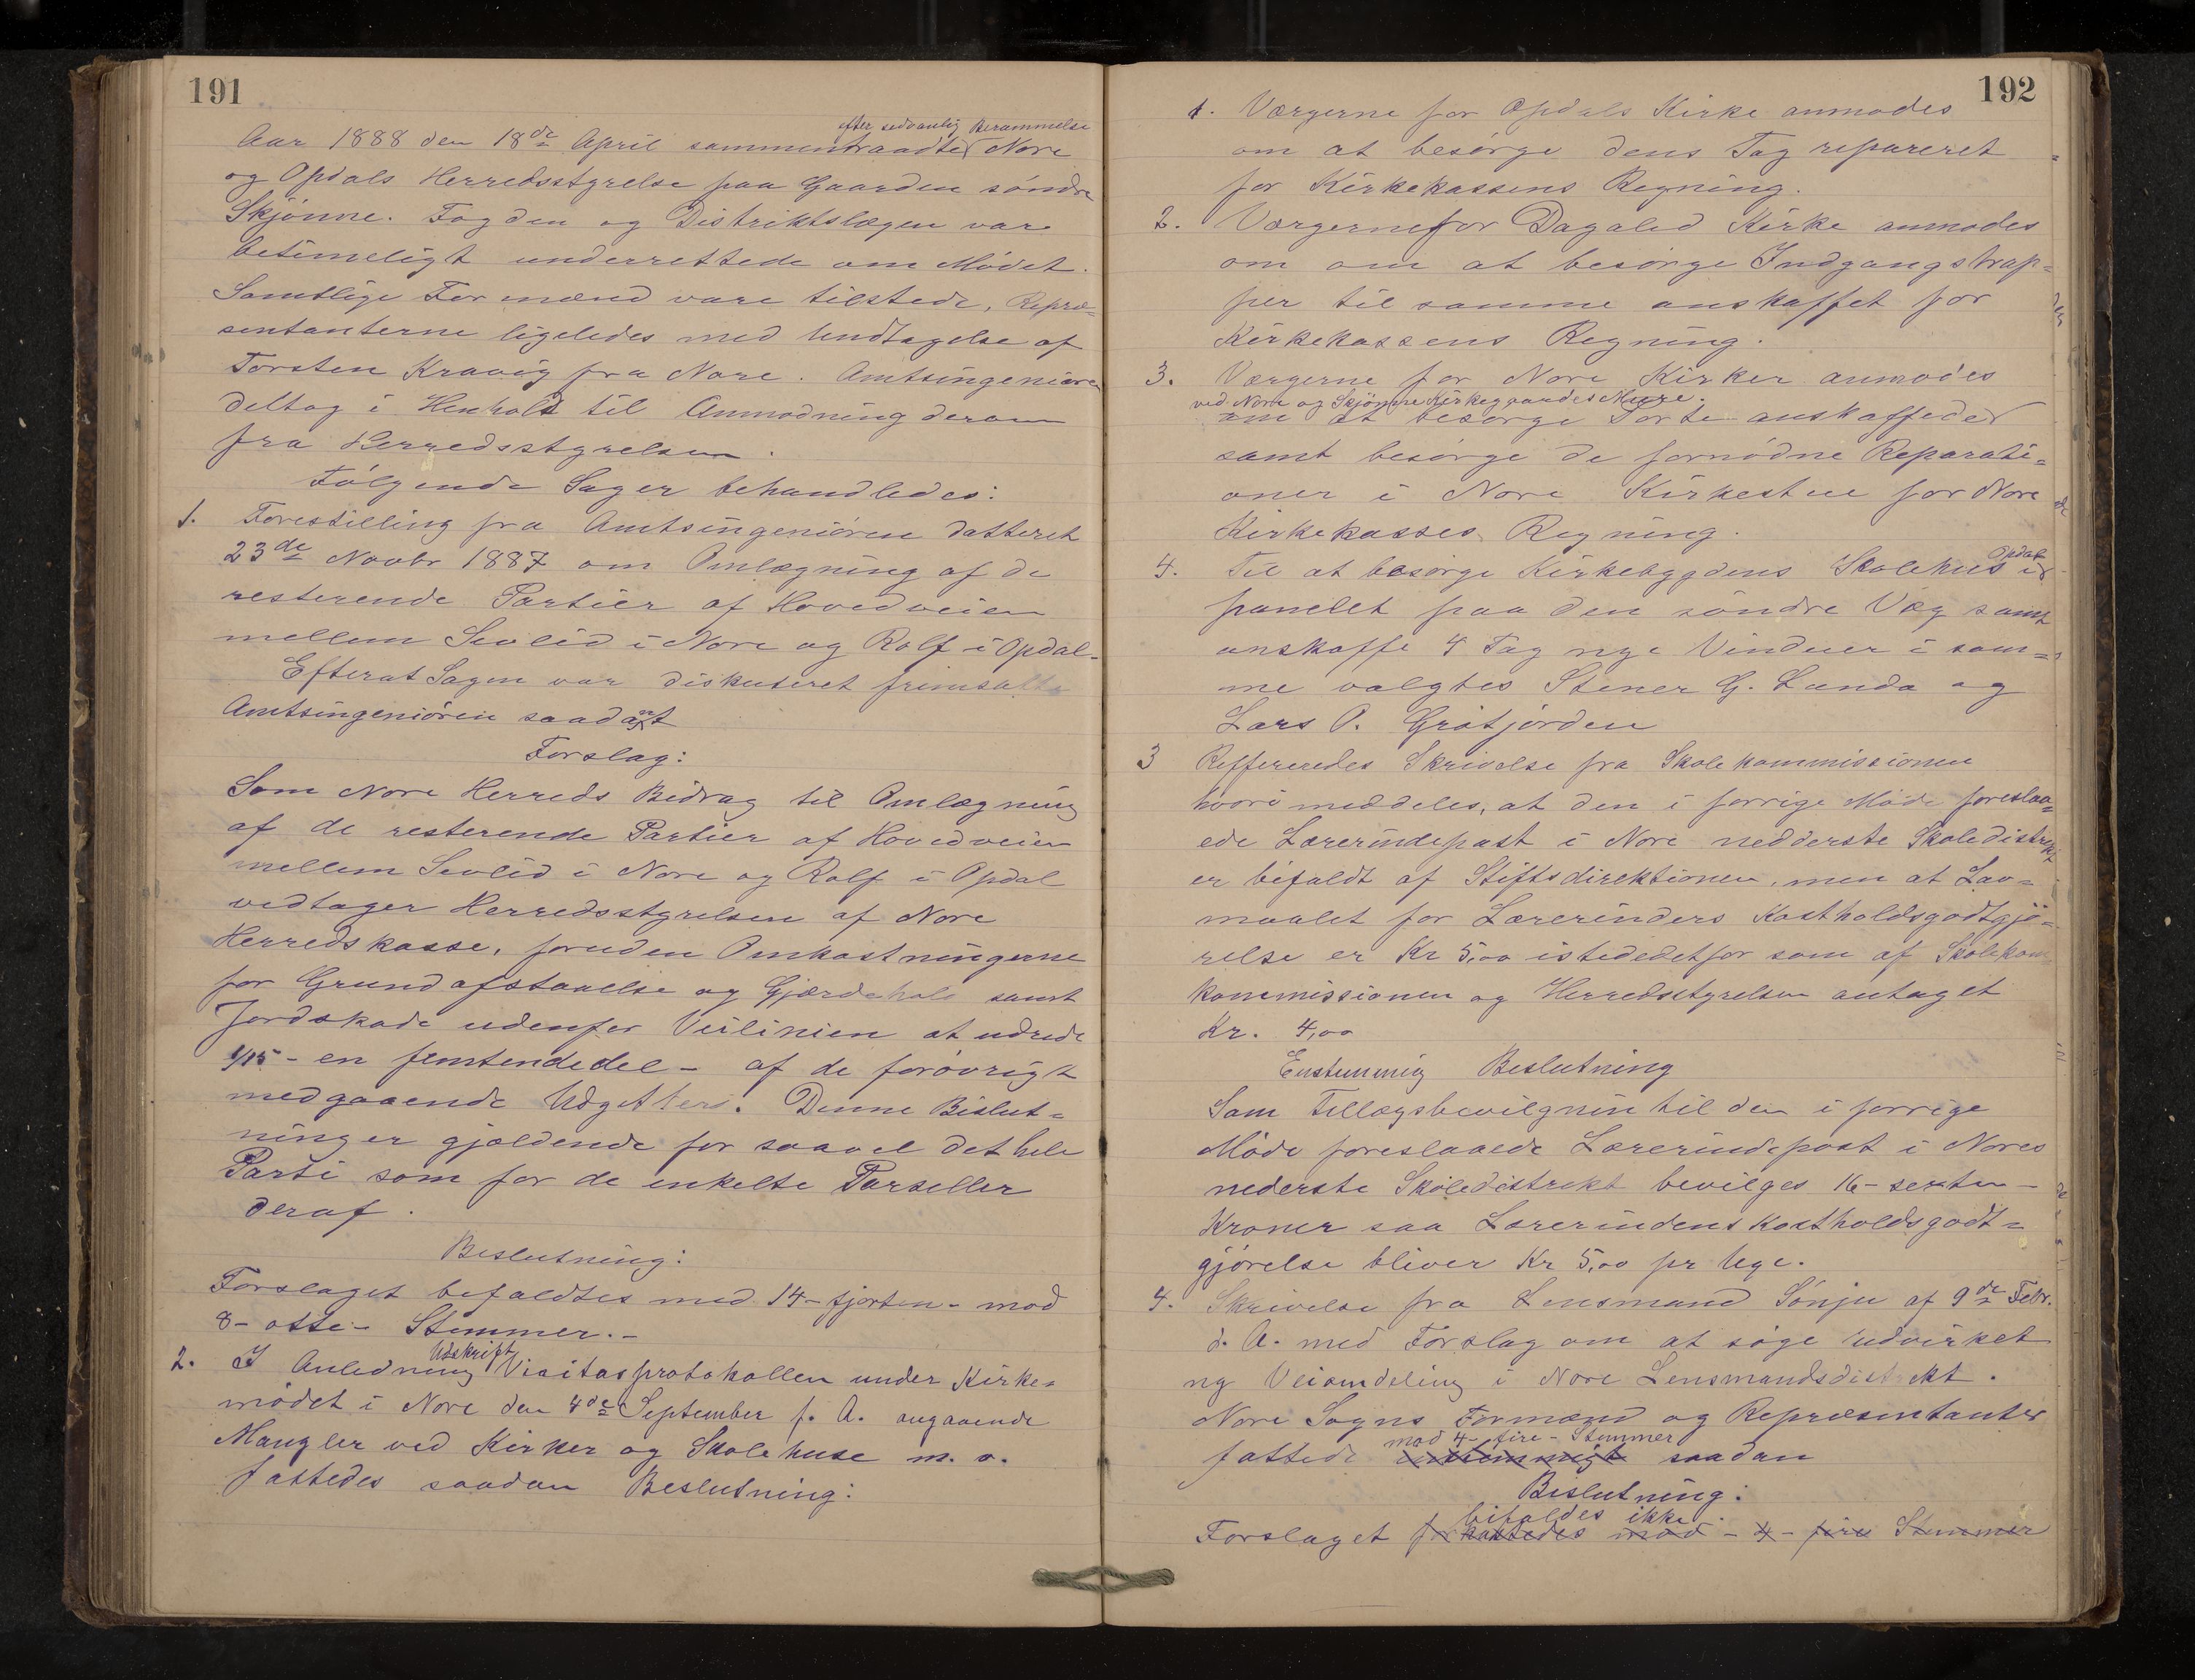 191
efter sedvanlig Berammelse
Aar 1888 den 18de April sammentraadte Nore
og Opdals Herredsstyrelse paa Gaarden søndre
Skjönne. Fogden og Distriktslægen var
betimeligt underrettede om Mödet.
Samtlige Formænd vare tilstede, Repræ=
sentanterne ligeledes med Undtagelse af
Torsten Kravig fra Nore. Amtsingeniøren
deltog i Henhold til Anmodning derom
fra Herredsstyrelsen.
Fölgende Sager behandledes:
1. Forestilling fra Amtsingeniören datteret
23de Novbr 1887 om Omlægning af de
resterende Partier af Hovedveien
mellem Sevlid i Nore og Rolf i Opdal.
Efterat Sagen var diskuteret fremsatte
Amtsingeniören saadant
Forslag:
Som Nore Herreds Bidrag til Omlægning
af de resterende Partier af Hovedveien
mellem Sevlid i Nore og Rolf i Opdal
vedtager Herredsstyrelsen af Nore
Herredskasse, foruden Omkostningerne
for Grundafstaaelse og Gjærdehold samt
Jordskade udenfor Veilinien at udrede
1/15 - en femtendedel - af de forövrigt
medgaaende Udgifter. Denne Beslut=
ning er gjældende for saavel det hele
Parti som for de enkelte Parseller
deraf.
Beslutning:
Forslaget befaldtes med 14 - fjorten - mod
8 - otte - Stemmer. -
Udskrift
2. I Anledning Visitasprotokollen under Kirke=
mödet i Nore den 4de September f. A. angaaende
Mangler ved Kirker og Skolehuse m. v.
fattedes saadan Beslutning:
192
1. Værgerne for Opdals Kirke anmodes
om at besörge dens Tag repareret
for Kirkekassens Regning.
2. Værgerne for Dagalid Kirke anmodes
om om at besörge Indgangstrap=
per til samme anskaffet for
Kirkekassens Regning.
3. Værgerne for Nore Kirker anmodes
ved Nore og Skjönne Kirkegaardes Mure.
om at besörge Porte anskaffede
samt besörge de fornödne Reparati=
oner i Nore Kirkestue for Nore
Kirkekasses Regning.
Opdal
4. Til at besörge Kirkebygdens Skolehus i
panelet paa den söndre Væg samt
anskaffe 4 Fag nye Vinduer i sam=
me valgtes Stener G. Lunda og
Lars O. Grötjorden
3 Reffereredes Skrivelse fra Skolekommissionen
hvori meddeles, at den i forrige Möde foreslaa=
ede Lærerindepost i Nore nedderste Skoledistrikt
er bifaldt af Stiftsdirektionen, men at Lav=
maalet for Lærerinders Kostholdsgodtgjö=
relse er Kr 5,00 istededetfor som af Skolekom
kommissionen og Herredsstyrelsen antaget
Kr. 4,00
Enstemmig Beslutning
Som Tillægsbevilgnin til den i forrige
Möde foreslaaede Lærerindepost i Nores
nederste Skoledistrikt bevilges 16 - sexten -
Kroner saa Lærerindens Kostholdsgodt=
gjörelse bliver Kr 5,00 pr Uge.
4. Skrivelse fra Lensmand Sönju af 9de Febr.
d. A. med Forslag om at söge udvirket
ny Veiomdeling i Nore Lensmandsdistrikt.
Nore Sogns Formænd og Repræsentanter
mod 4 - fire - Stemmer
fattede enstemmigt saadan
Beslutning:
bifaldes ikke.
Forslaget forkastedes mod - 4 - fire Stemmer